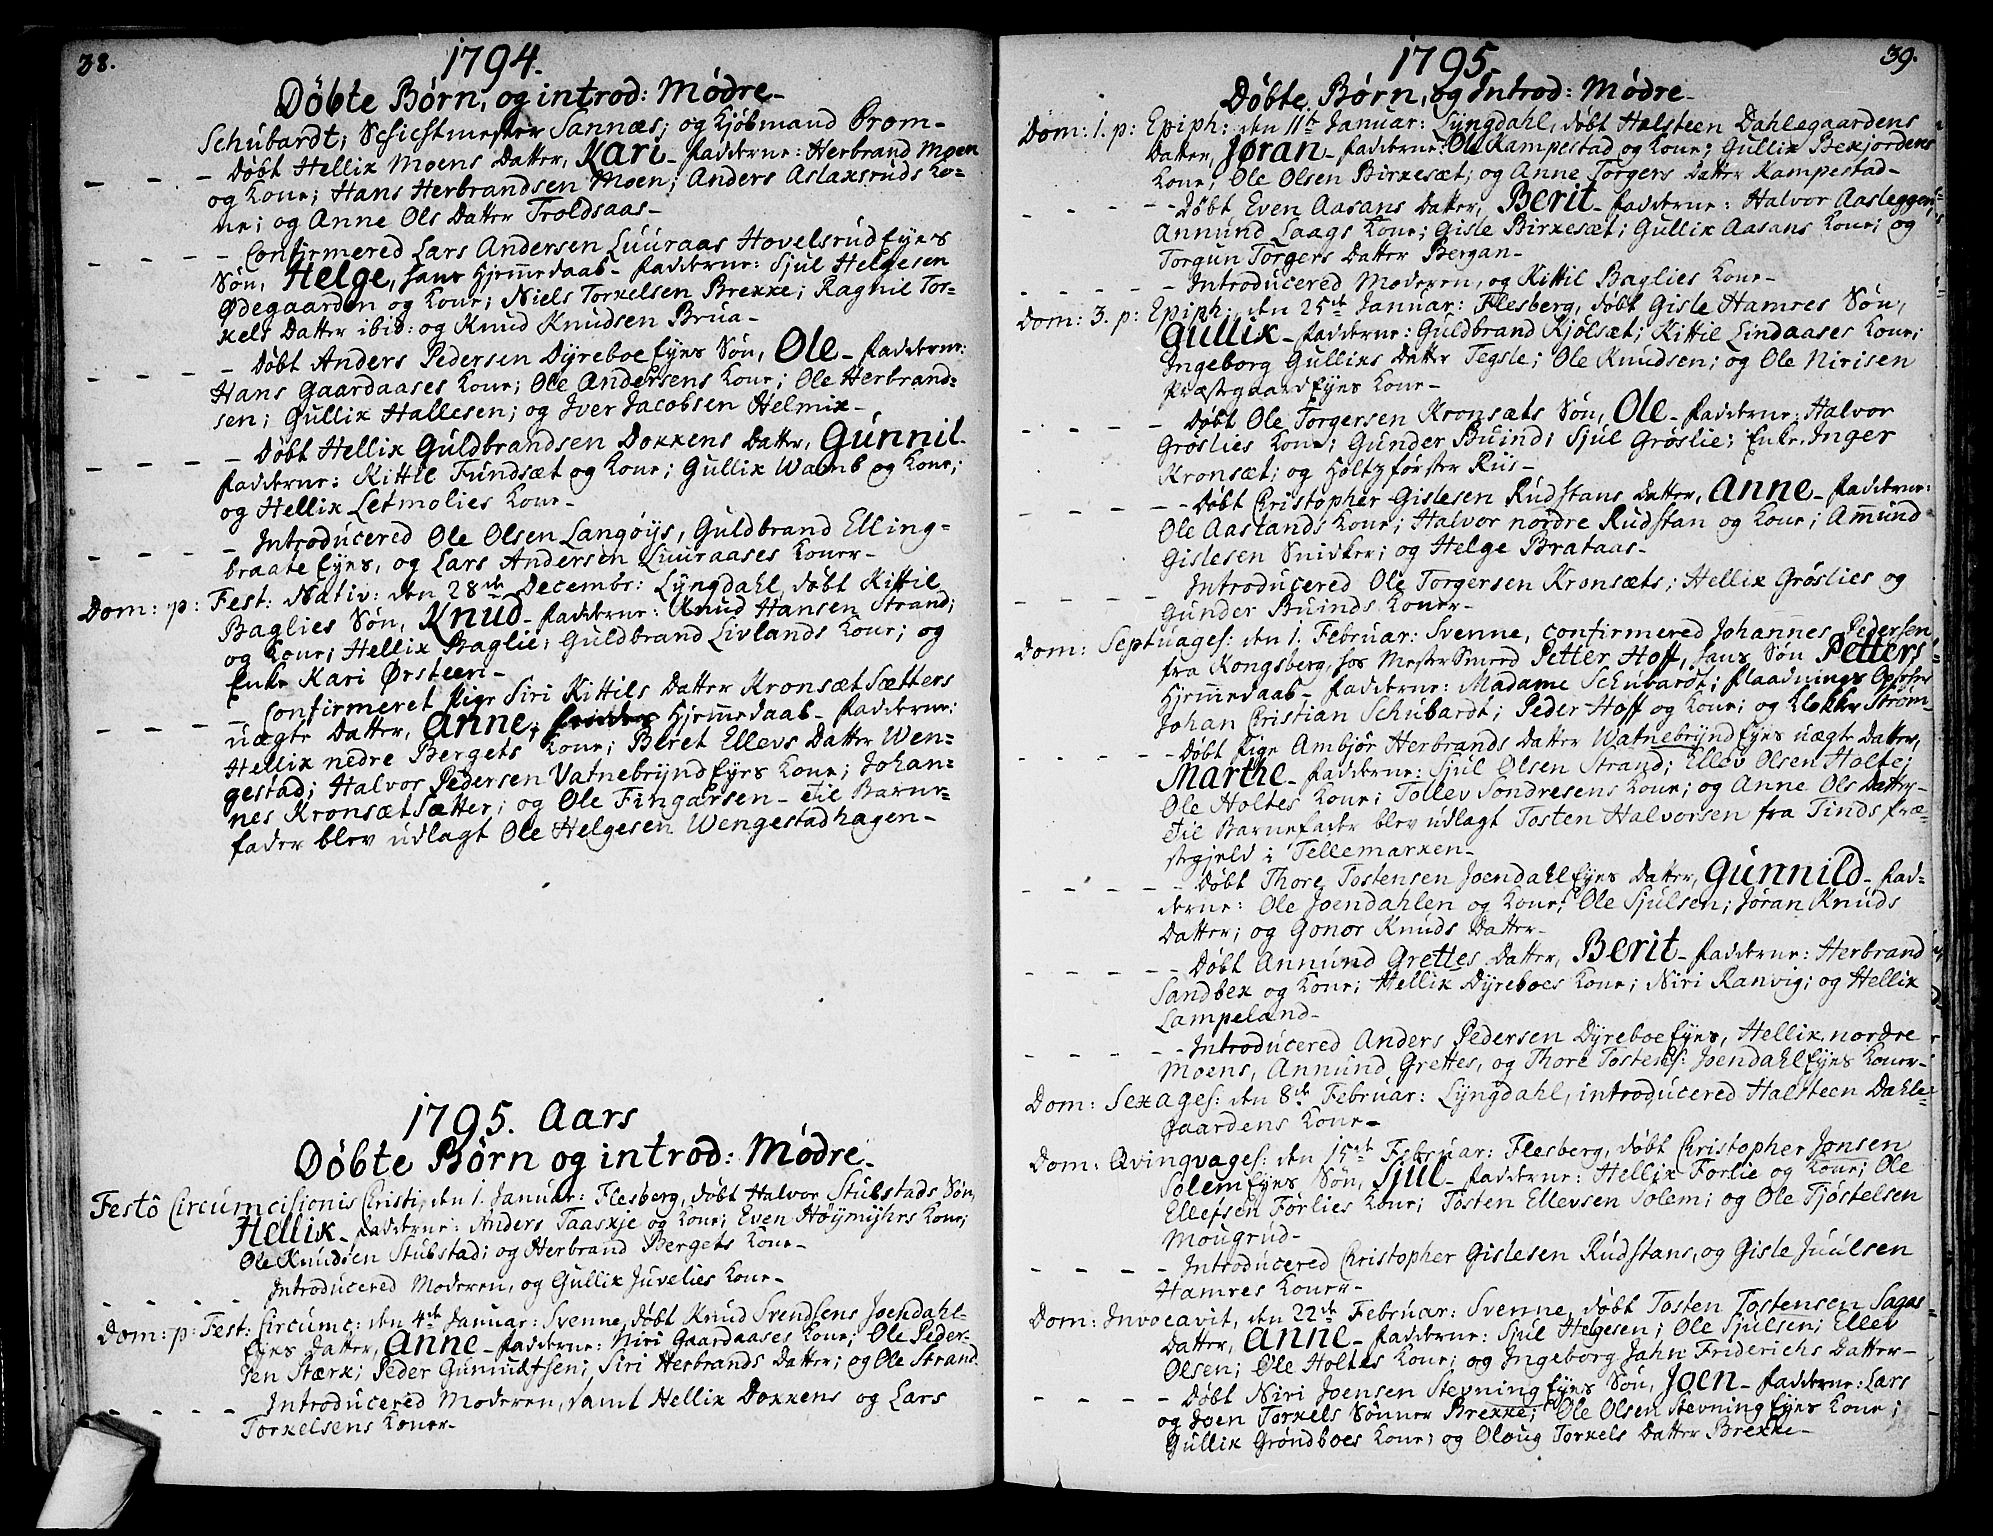 38.
1794.
Døbte Børn, og introd: Mødre-
Schubardt; Schichtmester Sannæs; og Kjøbmand Prom-
- - - - Døbt Hellik Moens Datter, Kari- Fadderne: Herbrand Moen
og Kone; Hans Herbrandsen Moen; Anders Aslaksruds Ko-
ne; og Anne Ols Datter Troldsaas-
- - - - Confirmered Lars Andersen Luuraas Hovelsrud Eyes
Søn, Helge, hans Hjemmedaab- Fadderne: Sjul Helgesen
Ødegaarden og Kone; Niels Torkelsen Brekke; Ragnil Tor-
kels Datter ibid: og Knud Knudsen Brua-
- - - - Døbt Anders Pedersen Dyreboe Eyes Søn, Ole- Fadderne:
Hans Gaardaases Kone; Ole Andersens Kone; Ole Herbrand-
sen; Gullik Hallesen; og Iver Jacobsen Helmik-
- - - - Døbt Hellik Guldbrandsen Dokkens Datter, Gunnil-
Fadderne: Kittil Fundsæt og Kone; Gullik Wamb og Kone;
og Hellik Letmolies Kone-
- - - - Introducered Ole Olsen Langøijs, Guldbrand Elling-
braate Eyes, og Lars Andersen Luuraases Koner-
Dom: p: Fest: Nativ: den 28de Decembr: Lyngdahl, døbt Kittil
Baglies Søn, Knud- Fadderne: Knud Hansen Strand;
og Kone; Hellik Baglie; Guldbrand Livlands Kone; og
Enke Kari Ørsteen-
- - - - Confirmeret Pige Siri Kittils Datter Kronsæt Sætters
uægte Datter, Anne, Hjemmedaab- Fadderne:
Hellik nedre Bergets Kone; Beret Ellevs Datter Wen-
gestad; Halvor Pedersen Vatnebrynd Eyes Kone; Johan-
nes Kronsæt Sætter; og Ole Fingarsen- Til Barne-
fader blev udlagt Ole Helgesen Wengestadhagen-
1795. Aars
Døbte Børn og introd: Mødre-
Festô Circumcisionis Christi, den 1. Januar: Flesberg, døbt Halvor Stubstads Søn,
Hellik- Fadderne: Anders Taaskje og Kone; Even Høymyhrs Kone;
Ole Knudsen Stubstad; og Herbrand Bergets Kone-
Introducered Moderen, og Gullik Juvelies Kone-
Dom: p: Fest: Circumc: den 4de Januar: Svenne, døbt Knud Svendsens Joendahl-
Eyes Datter, Anne- Fadderne: Niri Gaardaases Kone; Ole Peder-
sen Stærk; Peder Gunnudtsen; Siri Herbrands Datter; og Ole Strand.
- - - - Introducered Moderen, samt Hellik Dokkens og Lars
Torkelsens Koner-
39.
1795.
Døbte Børn, og Introd: Mødre-
Dom: 1. p: Epiph: den 11te Januar: Lyngdahl, døbt Halsteen Dahlegaardens
Datter, Jøran- Fadderne: Ole Kampestad og Kone; Gullik Bekjordens
Kone; Ole Olsen Birkesæt; og Anne Torgers Datter Kampestad-
- - - - Døbt Even Aasans Datter, Berit- Fadderne: Halvor Aasleggen;
Annund Laags Kone; Gisle Birkesæt; Gullik Aasans Kone; og
Torgun Torgers Datter Bergan-
- - - - Introducered Moderen, og Kittil Baglies Kone-
Dom: 3. p: Epiph: den 25de Januar: Flesberg, døbt Gisle Hamres Søn,
Gullik- Fadderne: Guldbrand Kjølsæt; Kittil Lindaases Kone;
Ingeborg Gulliks Datter Tegsle; Ole Knudsen; og Ole Nirisen
Præstegaard Eyes Kone-
- - - - Døbt Ole Torgersen Kronsæts Søn, Ole- Fadderne: Halvor
Grøslies Kone; Gunder Buind; Sjul Grøslie; Enke Inger
Kronsæt; og Holtzførster Riis-
- - - - Døbt Christopher Gislesen Rudstans Datter, Anne- Fadderne:
Ole Aaslands Kone; Halvor nordre Rudstan og Kone; Amund
Gislesen Snidker; og Helge Brataas-
- - - - Introducered Ole Torgersen Kronsæts; Hellik Grøslies og
Gunder Buinds Koner-
Dom: Septuages: den 1. Februar: Svenne, confirmered Johannes Pedersen
fra Kongsberg, hos Mester Smed Petter Hoff, hans Søn Petters
Hjemmedaab- Fadderne: Madame Schubardt; Flaadnings Opsøer
Johan Christian Schubardt; Peder Hoff og Kone; og Klokker Strøm-
- - - - Døbt Pige Ambjør Herbrands Datter Watnebrynd Eyes uægte Datter,
Marthe- Fadderne: Sjul Olsen Strand; Ellev Olsen Holte;
Ole Holtes Kone; Tollev Sondresens Kone; og Anne Ols Datter-
Til Barnefader blev udlagt Tosten Halvorsen fra Tinds Præ-
stegjeld i Tellemarken-
- - - - Døbt Thore Tostensen Joendahl Eyes Datter, Gunnild- Fad-
derne: Ole Joendahlen og Kone; Ole Sjulsen; Jøran Knuds
Datter; og Gonor Knuds Datter-
- - - - Døbt Annund Grettes Datter, Berit- Fadderne: Herbrand
Sandbek og Kone; Hellik Dyreboes Kone; Niri Ranvig; og Hellik
Lampeland-
- - - - Introducered Anders Pedersen Dyreboe Eyes, Hellik nordre
Moens, Annund Grettes, og Thore Tostens: Joendahl Eyes Koner-
Dom: Sexages: den 8de Februar: Lyngdahl, introducered Halsteen Dahle-
gaardens Kone-
Dom: Qvinqvages: den 15de Februar: Flesberg, døbt Christopher Jonsen
Solem Eyes Søn, Sjul- Fadderne: Hellik Førlie og Kone; Ole
Ellefsen Førlies Kone; Tosten Ellevsen Solem; og Ole Tjøstelsen
Mougrud-
- - - - Introducered Christopher Gislesen Rudstans, og Gisle Juulsen
Hamres Koner-
Dom: Invocavit, den 22de Februar: Svenne, døbt Tosten Tostensen Sagas
Datter, Anne- Fadderne: Sjul Helgesen; Ole Sjulsen; Ellev
Olsen; Ole Holtes Kone; og Ingeborg Jahn Friderichs Datter-
- - - - Døbt Niri Joensen Stevning Eyes Søn, Joen- Fadderne: Lars
og Joen Torkels Sønner Brekke; Ole Olsen Stevning Eyes Kone;
Gullik Grøndboes Kone; og Oloug Torkels Datter Brekke-